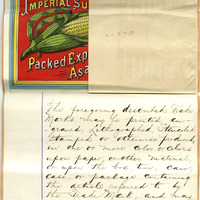 IMPERIAL SU
Packed Exp
Asa
The foregoing described Trade
Marks may be printed, en-
graved, Lithographed, Stenciled
Stamped or otherwise produced
in one or more color or colors
upon paper or other material,
or upon the box, tin, can,
case or package containing
the article referred to by
the Trade Mark, and may